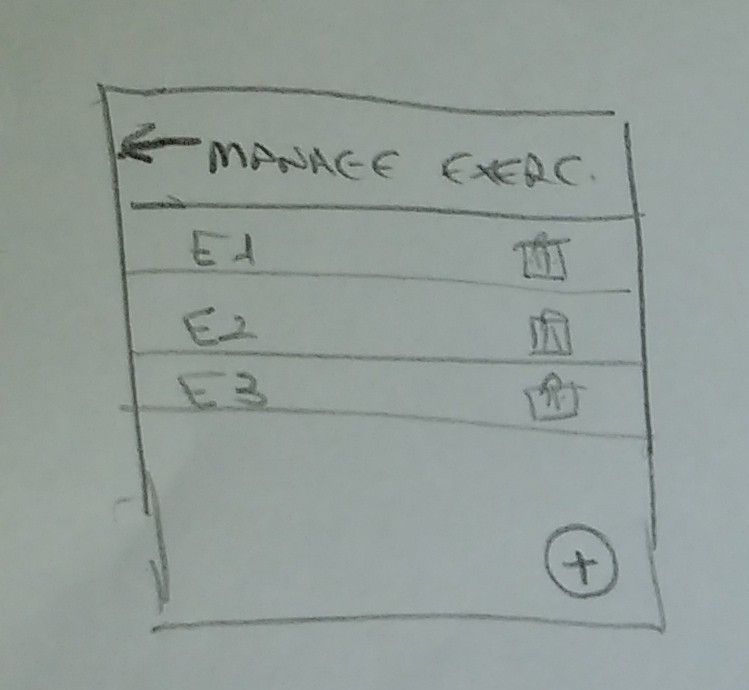 ← MANAGE EXERC.
E1
E2
E3
+